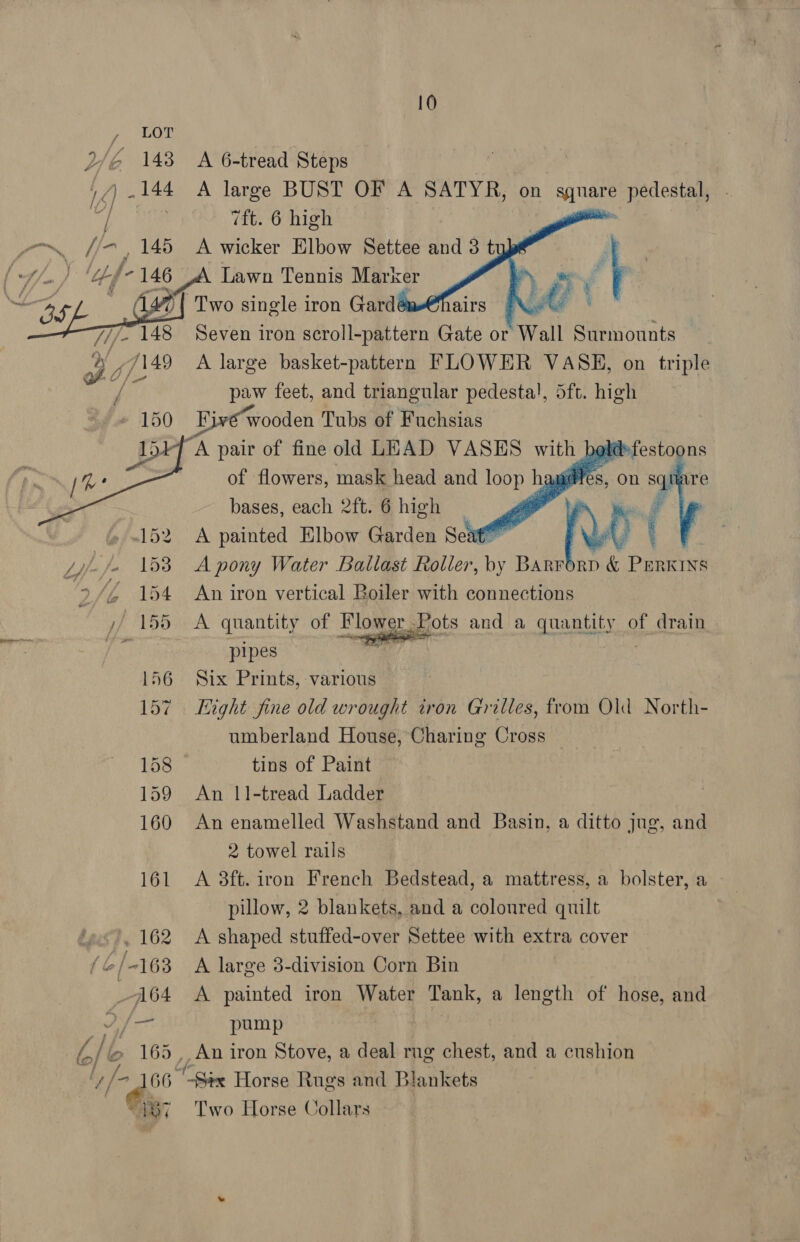 10
LOT
2/6 143 A 6-tread Steps
144 A large BUST OF A SATYR, on square pedestal,
7ft. 6 high
145 A wicker Elbow Settee and 3
146 A Lawn Tennis Marker
147 Two single iron Garden Chairs
148 Seven iron scroll-pattern Gate or Wall Surmounts
149 A large basket-pattern FLOWER VASE, on triple
paw feet, and triangular pedestal, 5ft. high
150 Five wooden Tubs of Fuchsias
151 A pair of fine old LEAD VASES with bold festoons
of flowers, mask head and loop handles, on square
bases, each 2ft. 6 high
152 A painted Elbow Garden Seat
153 A pony Water Ballast Roller, by BARFORD & PERKINS
2/6 154 An iron vertical Boiler with connections
155 A quantity of Flower Pots and a quantity of drain
pipes
156 Six Prints, various
157 Eight fine old wrought iron Grilles, from Old North-
umberland House, Charing Cross
158 tins of Paint
159 An 11-tread Ladder
160 An enamelled Washstand and Basin, a ditto jug, and
2 towel rails
161 A 3ft. iron French Bedstead, a mattress, a bolster, a
pillow, 2 blankets, and a coloured quilt
162 A shaped stuffed-over Settee with extra cover
163 A large 3-division Corn Bin
164 A painted iron Water Tank, a length of hose, and
pump
6/6 165 An iron Stove, a deal rug chest, and a cushion
166 Six Horse Rugs and Blankets
167 Two Horse Collars